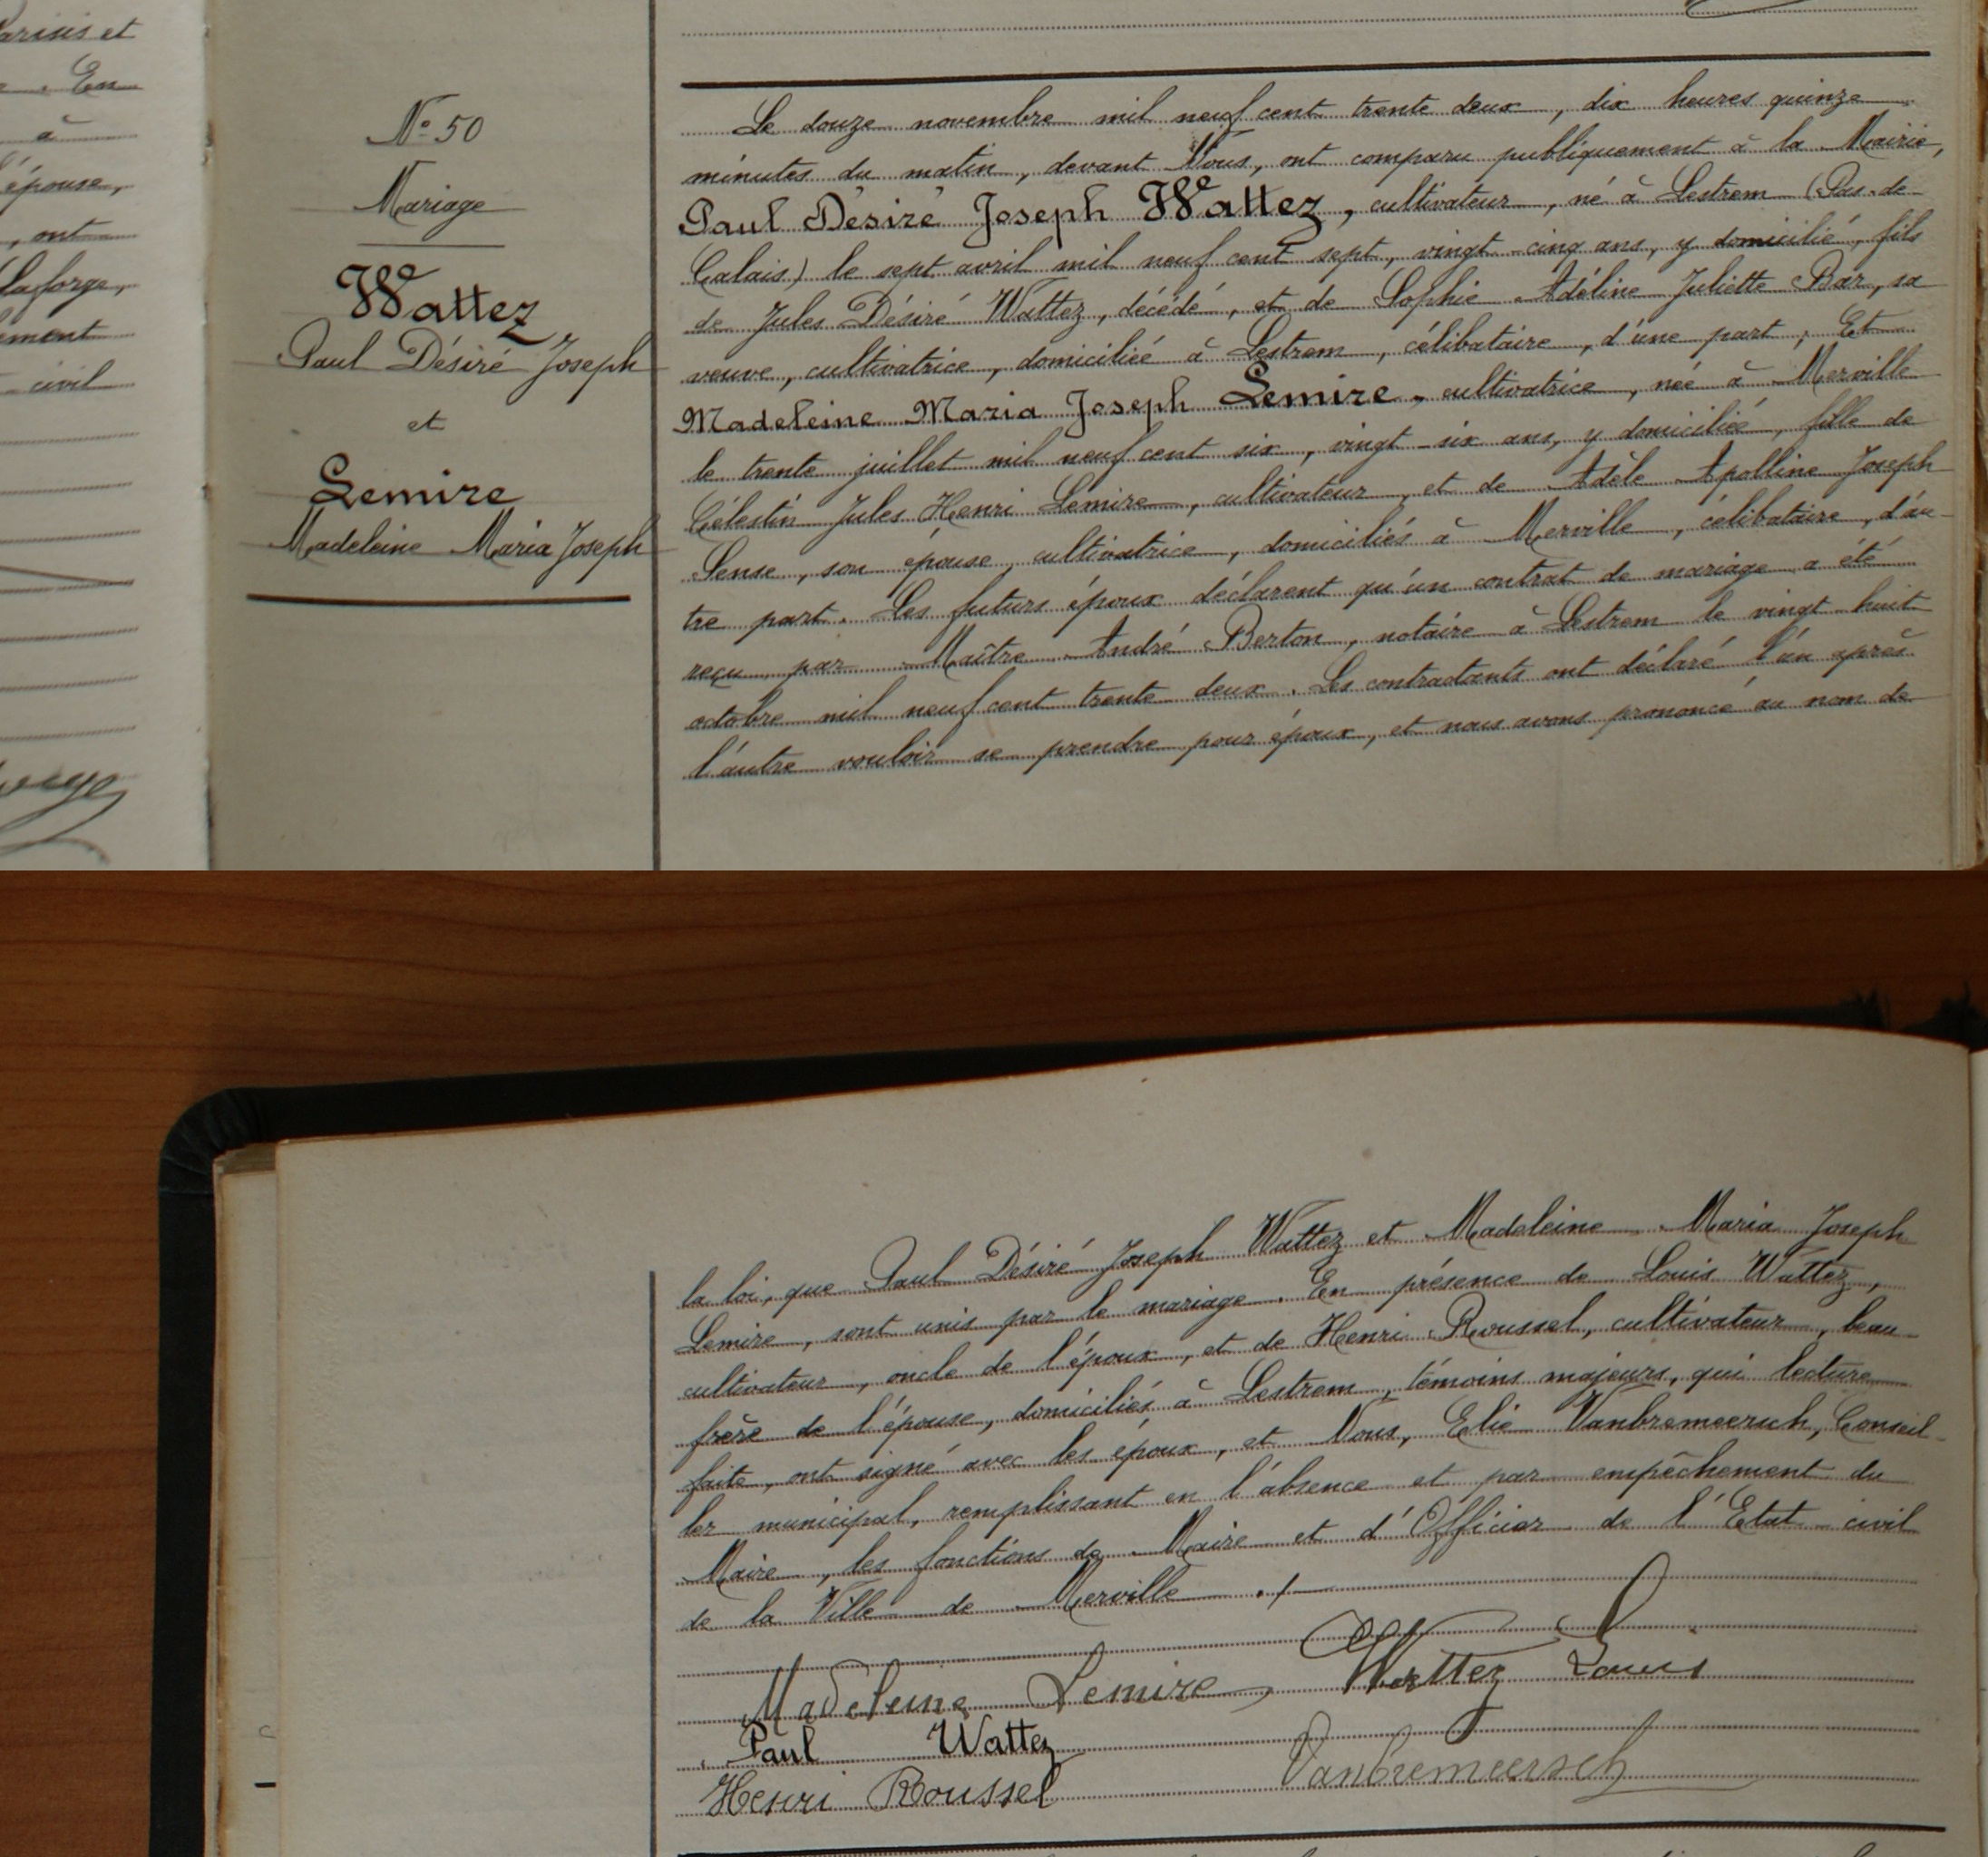 arisis et
. En
à
l'épouse,
, ont
Laforge,
ement
civil
N° 50
Mariage
Wattez
Paul Désiré Joseph
et
Lemire
Madeleine Maria Joseph
Le douze novembre mil neuf cent trente deux, dix heures quinze
minutes du matin, devant Nous, ont comparu publiquement à la Mairie,
Paul Désiré Joseph Wattez, cultivateur, né à Lestrem (Pas-de-
Calais) le sept avril mil neuf cent sept, vingt-cinq ans, y domicilié, fils
de Jules Désiré Wattez, décédé, et de Sophie Adéline Juliette Bar, sa
veuve, cultivatrice, domiciliée à Lestrem, célibataire, d'une part; Et
Madeleine Maria Joseph Lemire, cultivatrice, née à Merville
le trente juillet mil neuf cent six, vingt-six ans, y domiciliée, fille de
Célestin Jules Henri Lemire, cultivateur, et de Adèle Apolline Joseph
Sense, son épouse, cultivatrice, domiciliés à Merville, célibataire, d'au-
tre part. Les futurs époux déclarent qu'un contrat de mariage a été
reçu par Maître André Berton, notaire à Lestrem le vingt huit
octobre mil neuf cent trente deux. Les contractants ont déclaré l'un après
l'autre vouloir se prendre pour époux, et nous avons prononcé au nom de
la loi, que Paul Désiré Joseph Wattez et Madeleine Maria Joseph
Lemire, sont unis par le mariage. En présence de Louis Wattez,
cultivateur, oncle de l'époux, et de Henri Roussel, cultivateur, beau-
frère de l'épouse, domiciliés à Lestrem, témoins majeurs, qui lecture
faite, ont signé avec les époux, et Nous, Elie Vanbremeersch, Conseil-
ler municipal, remplissant en l'absence et par empêchement du
Maire, les fonctions de Maire et d'Officier de l'Etat civil
de la Ville de Merville ./.
Madeleine Lemire Wattez Louis
Paul Wattez
Henri Roussel Vanbremeersch